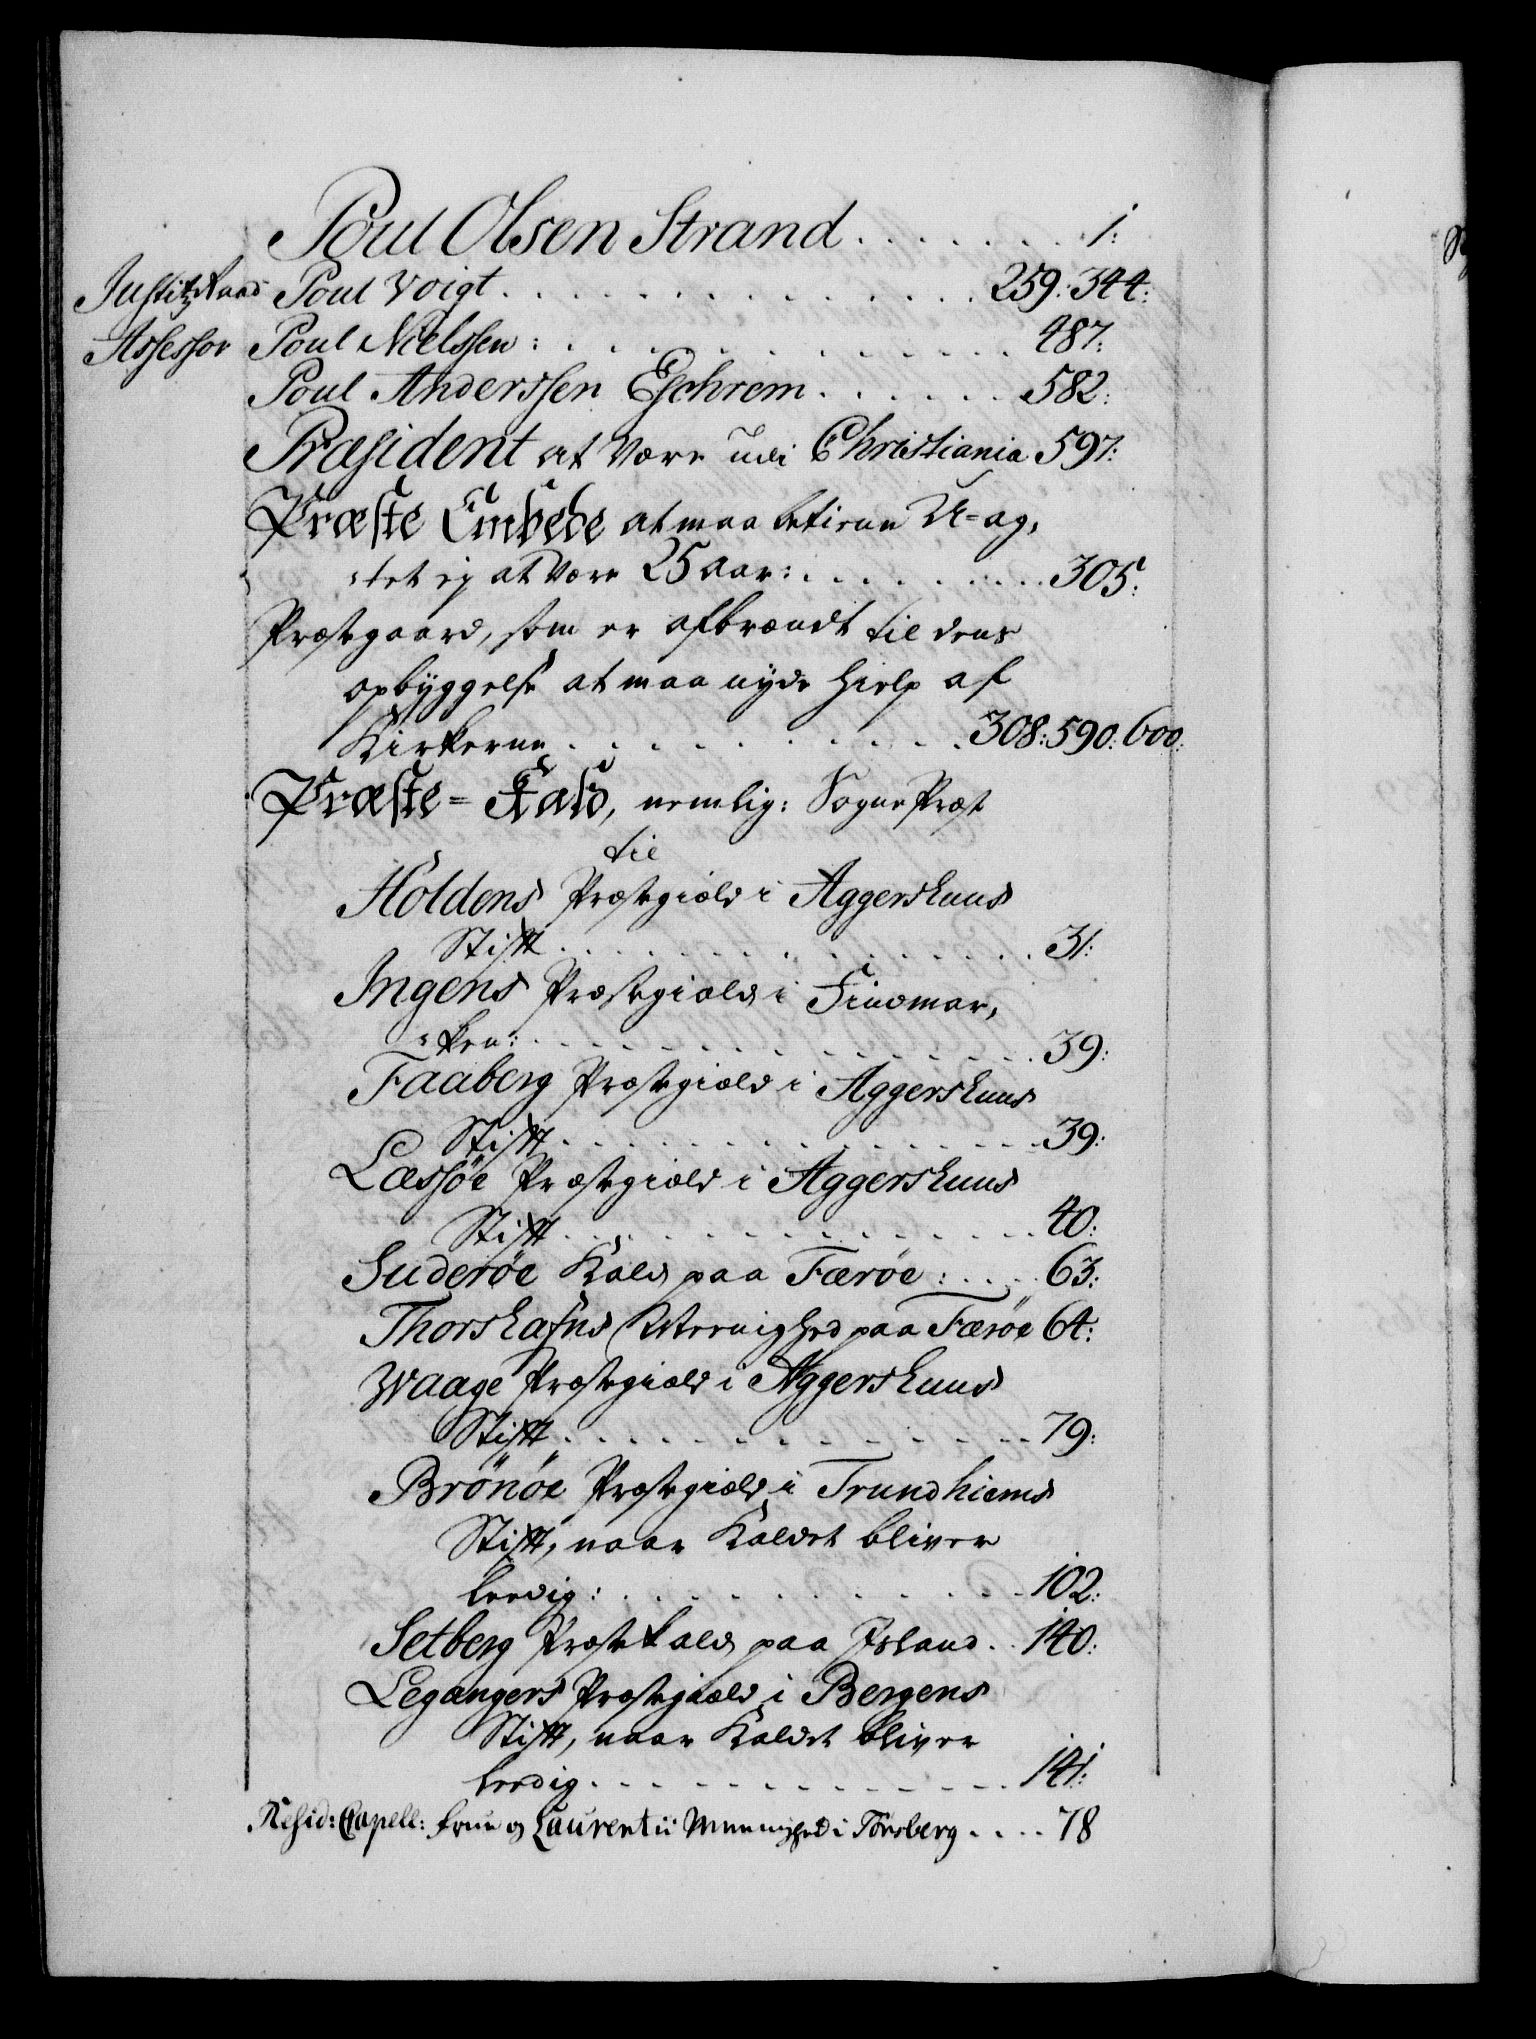 Poul Olsen Strand . . . . . . . 1:
Justitz Raad Poul Voigt . . . . . . . . . . . . 259: 344:
Assessor Poul Nielssen: . . . . . . . . . . . . 487:
Poul Anderssen Eschrem . . . . . . 582:
Præsident at være udi Christiania 597:
Præste Embede at maa betiene U=ag,
tet ej at være 25 aar: . . . . . . . . 305:
Præstegaard, som er afbrændt til dens
opbyggelse at maa nyde hielp af
Kirkerne . . . . . . . . . . 308: 590: 600:
Præste=Kald, nemlig: SognePræst
til
Holdens Præstegield i Aggershuus
Stift . . . . . . . . . . . . . 31:
Ingens Præstegield i Findmar,
ken: . . . . . . . . . . . . . . 39:
Faaberg Præstegield i Aggershuus
Stift . . . . . . . . . . . . . . 39:
Læssöe Præstegield i Aggershuus
Stift . . . . . . . . . . . . . . 40:
Suderöe Kald paa Færöe: . . . . 63:
Thorshafns Meenighed paa Færöe 64:
Waage Præstegield i Aggershuus
Stift . . . . . . . . . . . . . . 79:
Brönöe Præstegield i Trundhiems
Stift, naar Kaldet bliver
leedig: . . . . . . . . . . . . 102:
Setberg Præstekald paa Island . . 140:
Legangers Præstegield i Bergens
Stift, naar Kaldet bliver
leedig . . . . . . . . . . . . . 141:
Resid: Capell: Frue og Laurentii Meenighed i Tönsberg . . . . 78